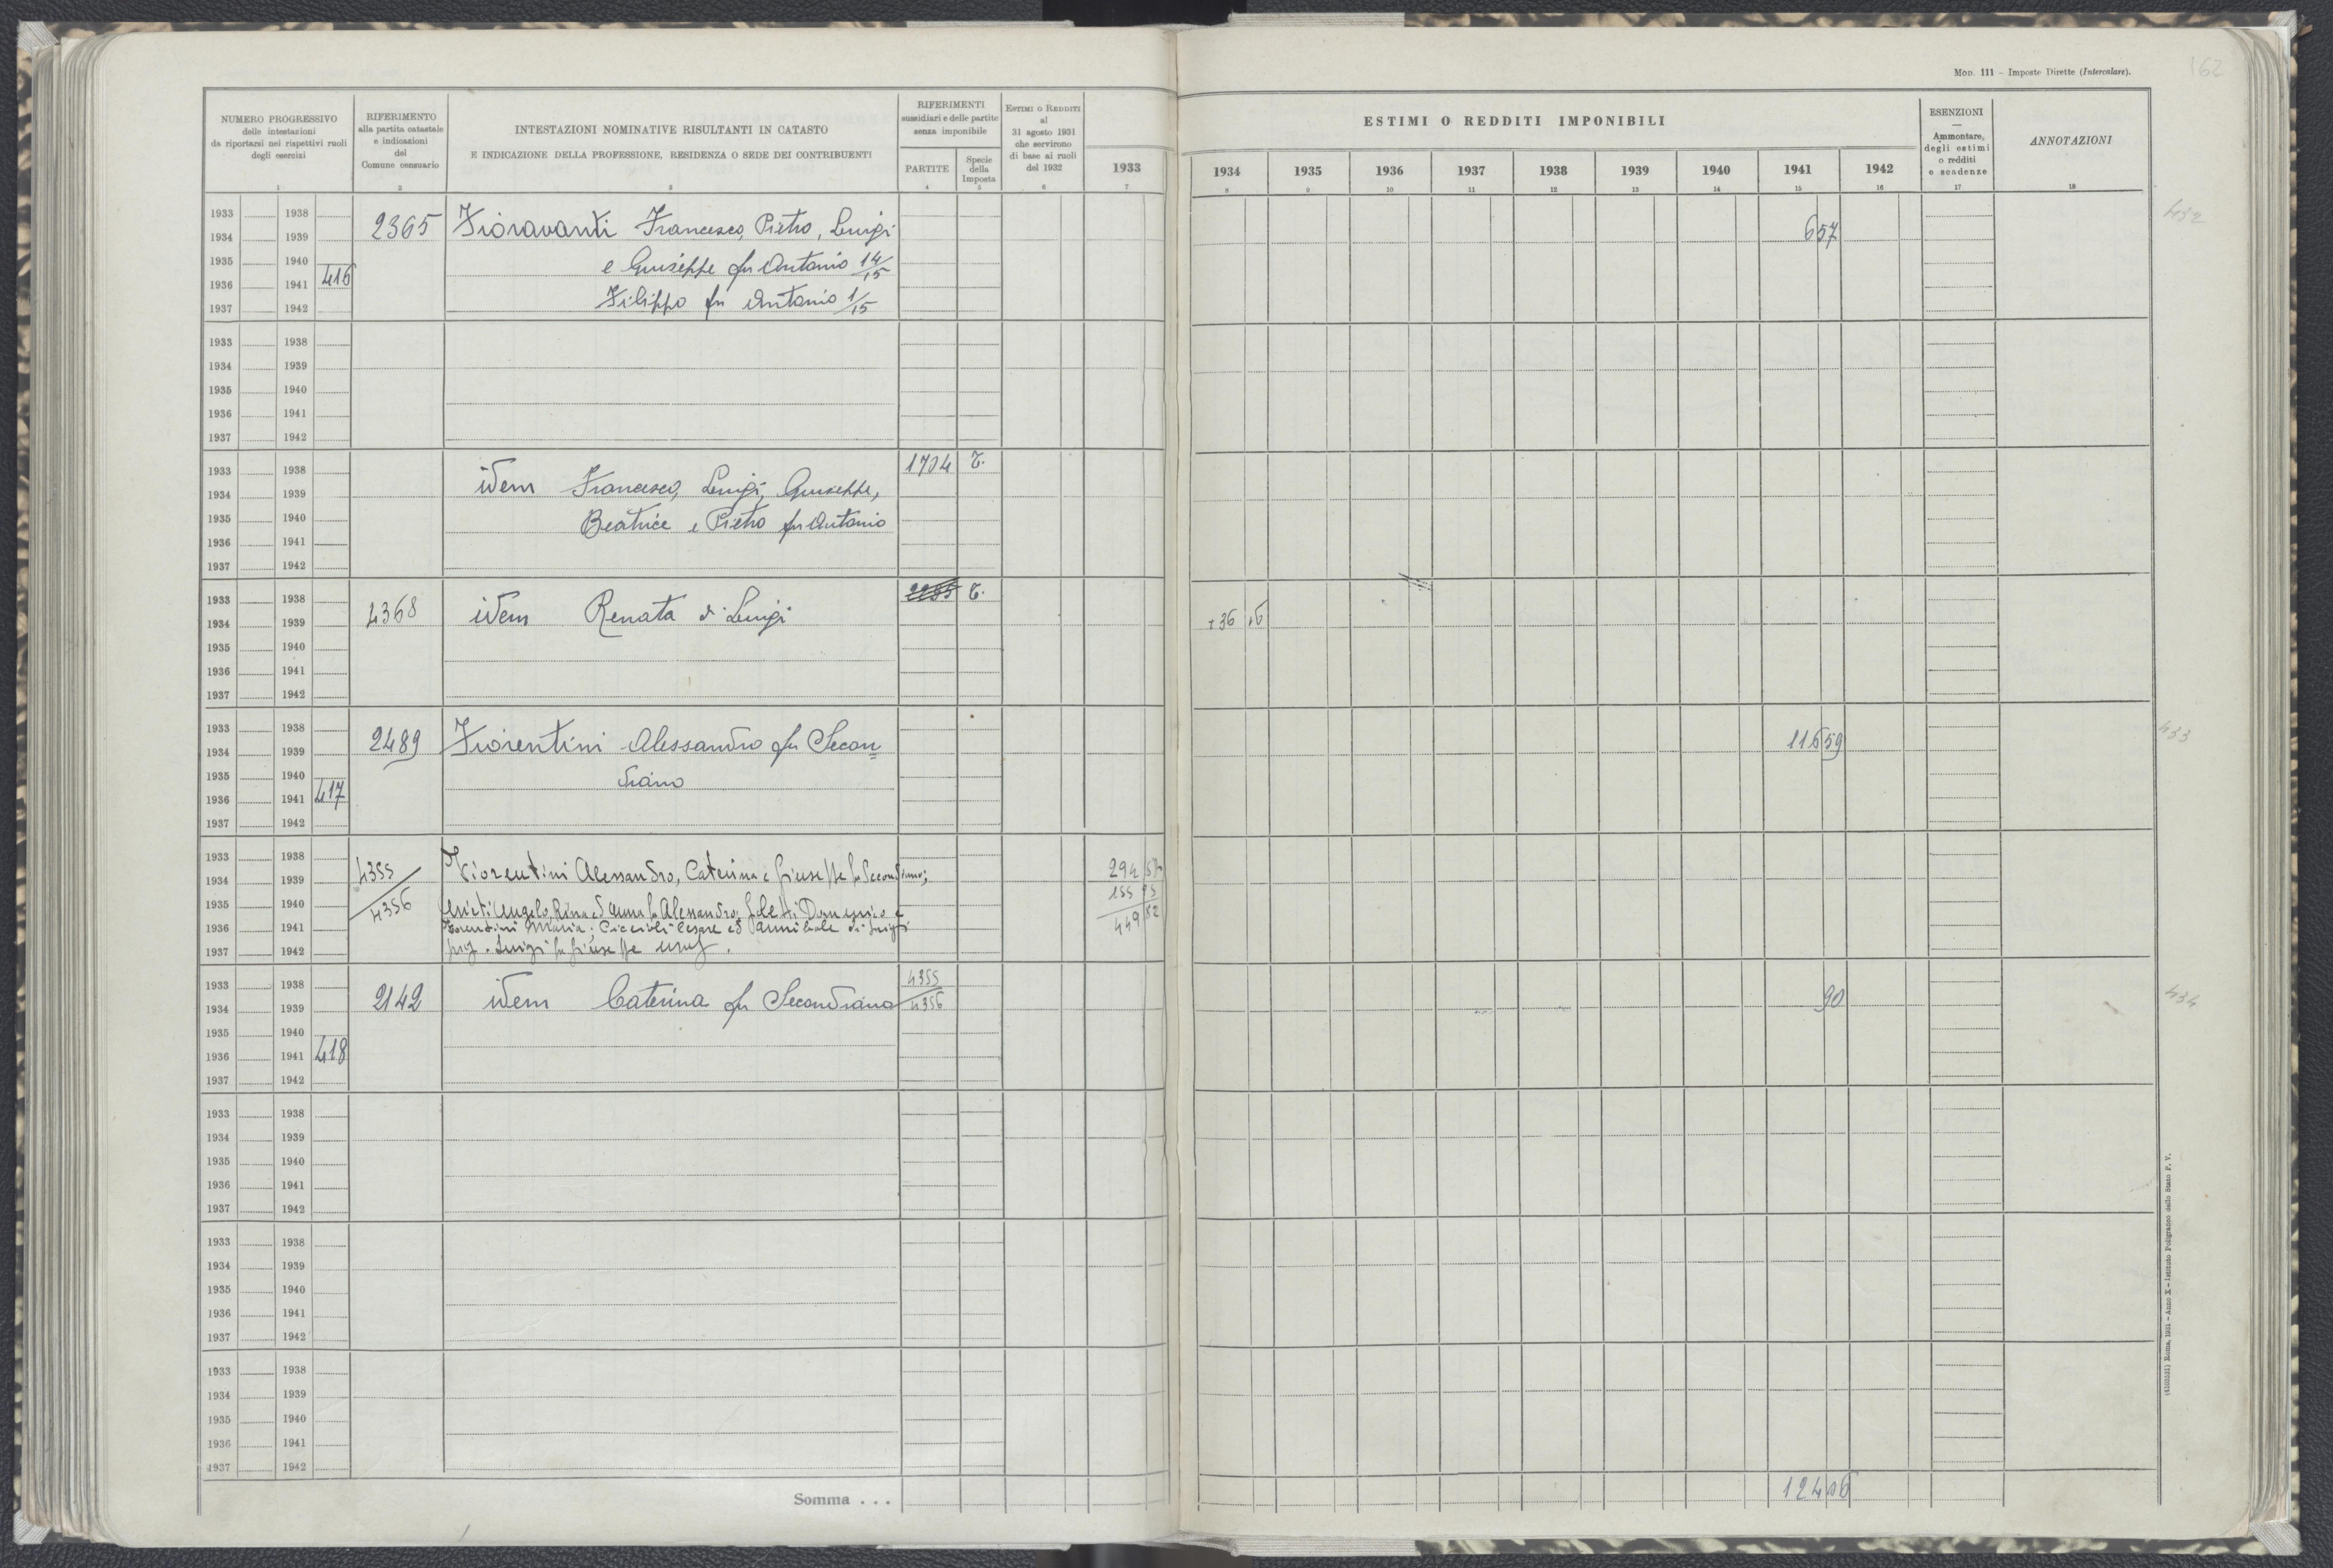 Mod. 111 – Imposte Dirette (Intercalare).
162
NUMERO PROGRESSIVO
delle intestazioni
da riportarsi nei rispettivi ruoli
degli esercizi
1
RIFERIMENTO
alla partita catastale
e indicazioni
del
Comune censuario
2
INTESTAZIONI NOMINATIVE RISULTANTI IN CATASTO
E INDICAZIONE DELLA PROFESSIONE, RESIDENZA O SEDE DEI CONTRIBUENTI
3
RIFERIMENTI
sussidiari e delle partite
senza imponibile
PARTITE
4
Specie
della
Imposta
5
Estimi o Redditi
al
31 agosto 1931
che servirono
di base ai ruoli
del 1932
6
1933
7
ESTIMI O REDDITI IMPONIBILI
1934 1935 1936 1937 1938 1939 1940 1941 1942
8 9 10 11 12 13 14 15 16
ESENZIONI
—
Ammontare,
degli estimi
o redditi
e scadenze
17
ANNOTAZIONI
18
1933 1938
1934 1939 2365 Fioravanti Francesco, Pietro, Luigi 657 432
1935 1940 e Giuseppe fu Antonio 14/15
1936 1941 416
1937 1942 Filippo fu Antonio 1/15
1933 1938
1934 1939
1935 1940
1936 1941
1937 1942
1933 1938 1704 T.
1934 1939 idem Francesco, Luigi, Giuseppe,
1935 1940 Beatrice e Pietro fu Antonio
1936 1941
1937 1942
1933 1938 T.
1934 1939 4368 idem Renata di Luigi +36 16
1935 1940
1936 1941
1937 1942
1933 1938
1934 1939 2489 Fiorentini Alessandro fu Secon= 116 59 433
1935 1940 diano
1936 1941 417
1937 1942
1933 1938
1934 1939 4355 Fiorentini Alessandro, Caterina e Giuseppe fu Secondiano; 294 57
1935 1940 4356 Angelo, Rina ed Anna fu Alessandro; Domenico e 155 95
1936 1941 Fiorentini Maria; Cesare ed Annibale di Luigi 449 52
1937 1942 Luigi fu Giuseppe usuf.
1933 1938 4355
1934 1939 2142 idem Caterina fu Secondiano 4356 90 434
1935 1940
1936 1941 418
1937 1942
1933 1938
1934 1939
1935 1940
1936 1941
1937 1942
1933 1938
1934 1939
1935 1940
1936 1941
1937 1942
1933 1938
1934 1939
1935 1940
1936 1941
1937 1942
Somma . . . 124 06
(4103521) Roma, 1931 – Anno X – Istituto Poligrafico dello Stato P. V.